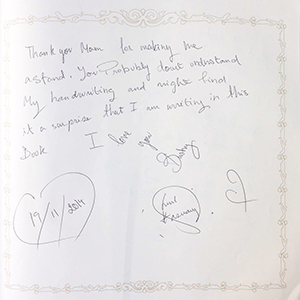 Thank you Mam for making me
astand. You Probably don't understand
My handwriting and might find
it a surprise that I am writing in this
Book
I love you
19/11/2014